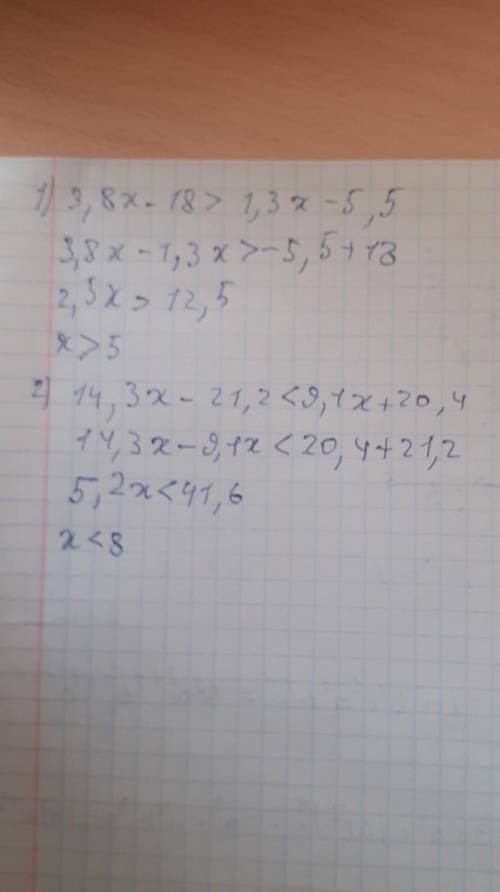 1) 3,8x - 18 > 1,3x - 5,5
3,8x - 1,3x > -5,5 + 18
2,5x > 12,5
x > 5
2) 14,3x - 21,2 < 9,1x + 20,4
14,3x - 9,1x < 20,4 + 21,2
5,2x < 41,6
x < 8